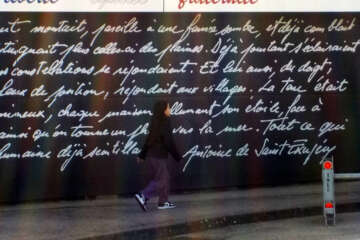 liberté égalité fraternité
nt, montait, pareille à une fumée sombre, et déjà comblait
tinguait plus celles-ci des plaines. Déjà pourtant s'éclairaient
s constellations se répondaient. Et lui aussi, du doigt,
feux de position, répondait aux villages. La terre était
neux, chaque maison allumant son étoile, face à
ainsi qu'on tourne un ph vers la mer. Tout ce qui
humaine déjà scintille Antoine de Saint Exupéry